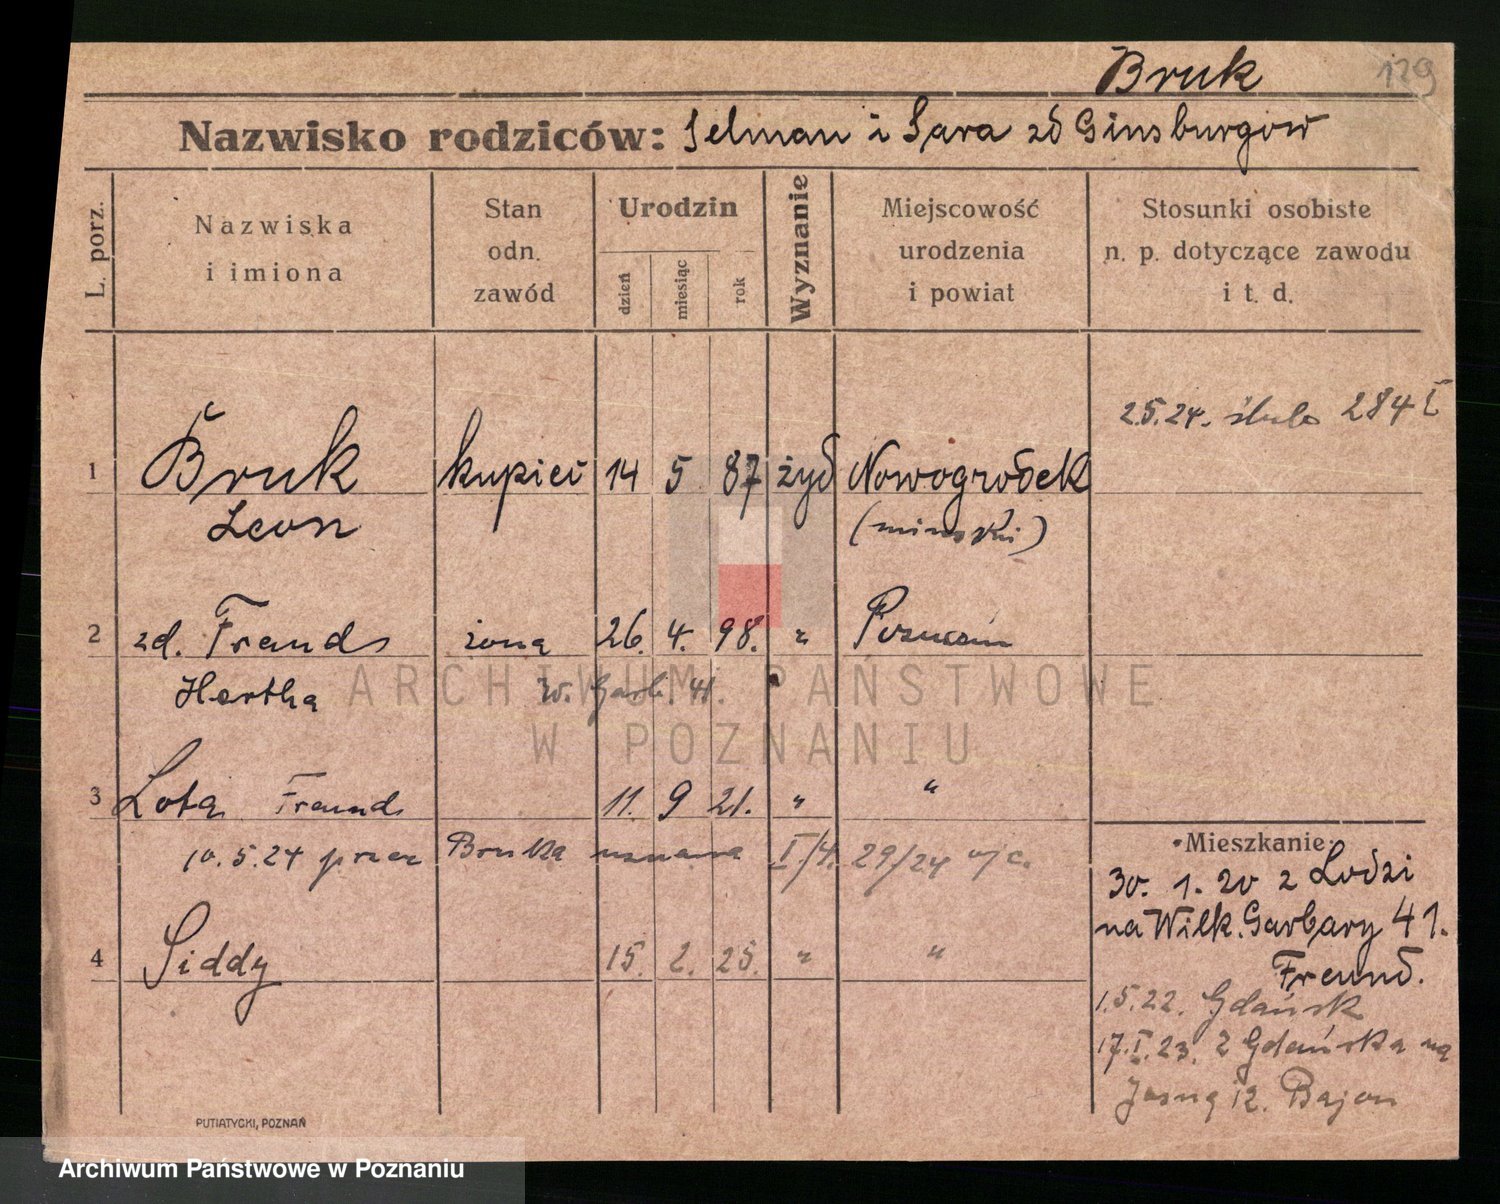 Bruk 129
Nazwisko rodziców: Selman i Sara zd Ginsburgów
L. porz.
Nazwiska
i imiona
Stan
odn.
zawód
Urodzin
dzień
miesiąc
rok
Wyznanie
Miejscowość
urodzenia
i powiat
Stosunki osobiste
n. p. dotyczące zawodu
i t. d.
2.5.24. ślub 284 I
1 Bruk kupiec 14 5 87 żyd Nowogrodek
Leon (minski)
2 zd. Freund żona 26. 4. 98. " Poznań
Hertha W. Garb. 41.
3 Lota Freund 11. 9 21. " "
10.5.24 przez Bruka uznana I/4. 29/24
4 Siddy 15. 2. 25. " "
Mieszkanie:
30. 1. 20 z Lodzi
na Wilk. Garbary 41.
Freund.
1.5.22. Gdańsk
17.I.23. z Gdańska na
Jasną 12. Bajon
PUTIATYCKI, POZNAŃ
ARCHIWUM PAŃSTWOWE
W POZNANIU
Archiwum Państwowe w Poznaniu